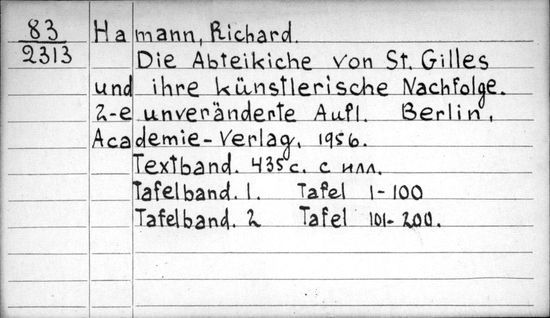 83
2313
Hamann, Richard.
Die Abteikiche von St. Gilles
und ihre künstlerische Nachfolge.
2-e unveränderte Aufl. Berlin,
Academie-Verlag, 1956.
Textband. 435 c. с илл.
Tafelband. 1. Tafel 1-100
Tafelband. 2 Tafel 101-200.